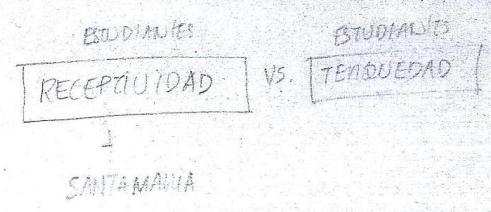 ESTUDIANTES ESTUDIANTES
RECEPTIVIDAD VS. TERQUEDAD
SANTAMARIA